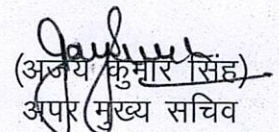 (अजय कुमार सिंह)
अपर मुख्य सचिव